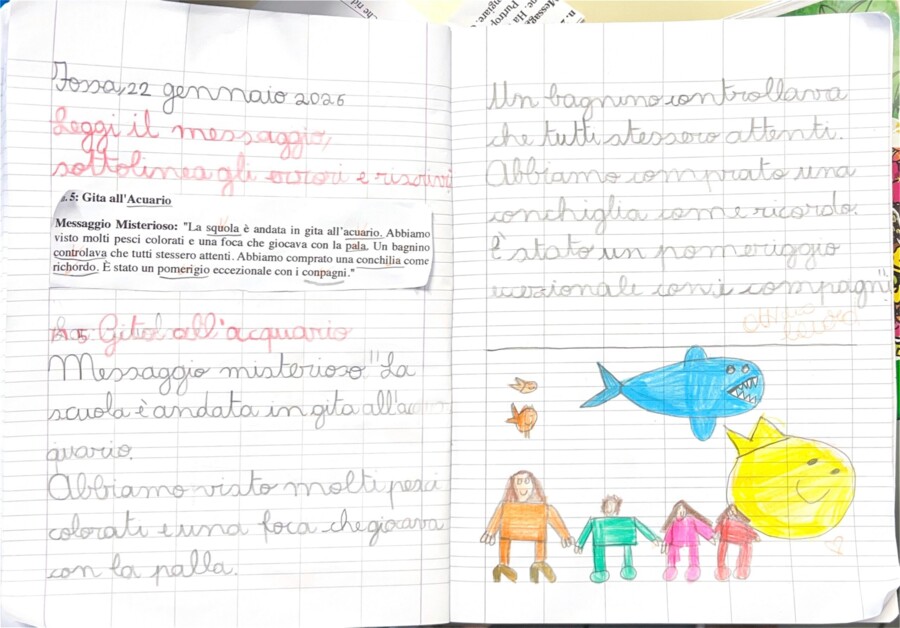 Fossa, 22 gennaio 2026
Leggi il messaggio,
sottolinea gli errori e riscrivi
n.5: Gita all'Acuario
Messaggio Misterioso: "La squola è andata in gita all'acuario. Abbiamo
visto molti pesci colorati e una foca che giocava con la pala. Un bagnino
controlava che tutti stessero attenti. Abbiamo comprato una conchilia come
richordo. È stato un pomerigio eccezionale con i conpagni."
n.5: Gita all'acquario
Messaggio misterioso "La
scuola è andata in gita all'ac
quario.
Abbiamo visto molti pesci
colorati e una foca che giocava
con la palla.
Un bagnino controllava
che tutti stessero attenti.
Abbiamo comprato una
conchiglia come ricordo.
È stato un pomeriggio
eccezionale con i compagni"